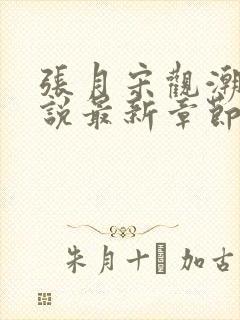 張月宋觀潮
說最新章節
朱月十 加古